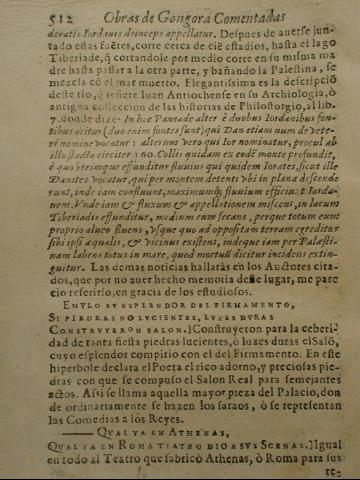 512 Obras de Gongora Comentadas
deratis Iordanis deinceps appellatur. Despues de auerse jun-
tado estas fuẽtes, corte cerca de ciẽ estadios, hasta el lago
Tiberiade, q̃ cortandole por medio corre en su misma ma
dre hasta passar a la otra parte, y bañando la Palestina, se
mezcla cõ el mar muerto. Elegantissima es la descripciõ
deste rio, q̃ refiere Iuan Antiochense en su Archiologia, ò
antigua colleccion de las historias de Philostorgio, al lib.
7. donde dize: In hac Paneade alter è duobus Iordanibus fon-
tibus oritur (duo enim fontes sunt) qui Dan etiam num de vete-
ri nomine vocatur: alterum vero qui Ior nominatur, procul ab
illo stadia circiter 160. Collis quidam ex eodẽ monte profundit,
è quo vtrimque effunditur fluuius qui quidem Iorates, sicut ille
Danites vocatur, qui per montem detenti vbi in plana descende
runt, inde iam confluunt, maximumq; fluuium efficiunt Iorda-
nem. Vnde iam & fluxum & appellationem miscens, in lacum
Tiberiadis effunditur, medium eum secans, perque totum eunt
proprio alueo fluens, vsque quo ad oppositam terram egreditur
sibi ipsi æqualis, & vicinus existens, indeque iam per Palæsti-
nam labens totus in mare, quod mortuũ dicitur incidens extin-
guitur. Las demas noticias hallaràs en los Auctores cita-
dos, que por no auer hecho memoria deste lugar, me pare
cio referirlo, en gracia de los estudiosos.
EMVLO SV ESPLENDOR DEL FIRMAMENTO,
SI PIEDRAS NO LVCIENTES, LVZES DVRAS
CONSTRVYERON SALON.] Construyeron para la celeberi
dad de tanta fiesta piedras lucientes, ò luzes duras el Salõ,
cuyo esplendor compitio con el del Firmamento. En este
hiperbole declara el Poeta el rico adorno, y preciosas pie
dras con que se compuso el Salon Real para semejantes
actos. Assi se llama aquella mayor pieza del Palacio, don
de ordinariamente se hazen los saraos, ò se representan
las Comedias a los Reyes.
QVAL YA EN ATHENAS,
QVAL YA EN ROMA TEATRO DIO A SVS SCENAS.] Igual
en todo al Teatro que fabricò Athenas, ò Roma para sus
sce-